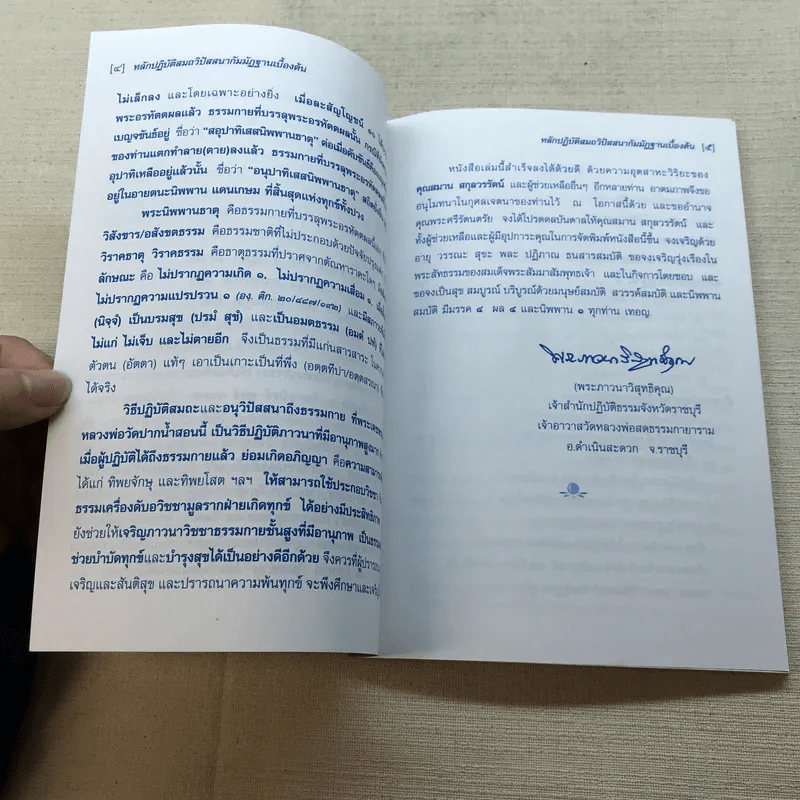 [๔] หลักปฏิบัติสมถวิปัสสนากัมมัฏฐานเบื้องต้น
ไม่เล็กลง และโดยเฉพาะอย่างยิ่ง เมื่อละสัญโญชน์ ๑๐
พระอรหัตตผลแล้ว ธรรมกายที่บรรลุพระอรหัตตผลนั้น
เบญจขันธ์อยู่ ชื่อว่า “สอุปาทิเสสนิพพานธาตุ” ต่อเมื่อดับขันธ์
ของท่านแตกทำลาย(ตาย)ลงแล้ว ธรรมกายที่บรรลุพระอรหัตตผล
อุปาทิเหลืออยู่แล้วนั้น ชื่อว่า “อนุปาทิเสสนิพพานธาตุ”
อยู่ในอายตนะนิพพาน แดนเกษม ที่สิ้นสุดแห่งทุกข์ทั้งปวง
พระนิพพานธาตุ คือธรรมกายที่บรรลุพระอรหัตตผล
วิสังขาร/อสังขตธรรม คือธรรมชาติที่ไม่ประกอบด้วยปัจจัยปรุงแต่ง
วิราคธาตุ วิราคธรรม คือธาตุธรรมที่ปราศจากตัณหาราคะ
ลักษณะ คือ ไม่ปรากฏความเกิด ๑, ไม่ปรากฏความเสื่อม ๑,
ไม่ปรากฏความแปรปรวน ๑ (อง. ติก. ๒๐/๔๘๗/๑๙๒)
(นิจฺจํ) เป็นบรมสุข (ปรมํ สุขํ) และเป็นอมตธรรม (อมตํ ปทํ)
ไม่แก่ ไม่เจ็บ และไม่ตายอีก จึงเป็นธรรมที่มีแก่นสารสาระ
ตัวตน (อัตตา) แท้ๆ เอาเป็นเกาะเป็นที่พึ่ง (อตฺตทีปา/อตฺตสรณา)
ได้จริง
วิธีปฏิบัติสมถะและอนุวิปัสสนาถึงธรรมกาย ที่พระเดชพระ
หลวงพ่อวัดปากน้ำสอนนี้ เป็นวิธีปฏิบัติภาวนาที่มีอานุภาพสูงมาก
เมื่อผู้ปฏิบัติได้ถึงธรรมกายแล้ว ย่อมเกิดอภิญญา คือความสามารถ
ได้แก่ ทิพยจักษุ และทิพยโสต ฯลฯ ให้สามารถใช้ประกอบวิชชา
ธรรมเครื่องดับอวิชชามูลรากฝ่ายเกิดทุกข์ ได้อย่างมีประสิทธิภาพ
ยังช่วยให้เจริญภาวนาวิชชาธรรมกายชั้นสูงที่มีอานุภาพ เป็นธรรม
ช่วยบำบัดทุกข์และบำรุงสุขได้เป็นอย่างดีอีกด้วย จึงควรที่ผู้ปรารถนา
เจริญและสันติสุข และปรารถนาความพ้นทุกข์ จะพึงศึกษาและเจริญ
หลักปฏิบัติสมถวิปัสสนากัมมัฏฐานเบื้องต้น [๕]
หนังสือเล่มนี้สำเร็จลงได้ด้วยดี ด้วยความอุตสาหะวิริยะของ
คุณสมาน สกุลวรรัตน์ และผู้ช่วยเหลืออื่นๆ อีกหลายท่าน อาตมภาพจึงขอ
อนุโมทนาในกุศลเจตนาของท่านไว้ ณ โอกาสนี้ด้วย และขออำนาจ
คุณพระศรีรัตนตรัย จงได้โปรดดลบันดาลให้คุณสมาน สกุลวรรัตน์ และ
ทั้งผู้ช่วยเหลือและผู้มีอุปการะคุณในการจัดพิมพ์หนังสือนี้ขึ้น จงเจริญด้วย
อายุ วรรณะ สุขะ พละ ปฏิภาณ ธนสารสมบัติ ขอจงเจริญรุ่งเรืองใน
พระสัทธรรมของสมเด็จพระสัมมาสัมพุทธเจ้า และในกิจการโดยชอบ และ
ขอจงเป็นสุข สมบูรณ์ บริบูรณ์ด้วยมนุษย์สมบัติ สวรรค์สมบัติ และนิพพาน
สมบัติ มีมรรค ๔ ผล ๔ และนิพพาน ๑ ทุกท่าน เทอญ.
พระภาวนาวิสุทธิคุณ
(พระภาวนาวิสุทธิคุณ)
เจ้าสำนักปฏิบัติธรรมจังหวัดราชบุรี
เจ้าอาวาสวัดหลวงพ่อสดธรรมกายาราม
อ.ดำเนินสะดวก จ.ราชบุรี